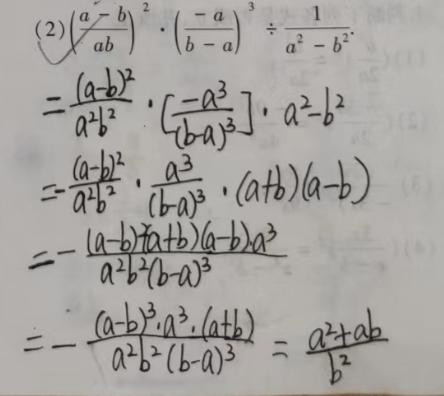 (2) ((a - b)/(ab))^2 · (-a/(b - a))^3 ÷ 1/(a^2 - b^2).
= (a-b)^2/(a^2b^2) · [-a^3/(b-a)^3] · a^2-b^2
= -(a-b)^2/(a^2b^2) · a^3/(b-a)^3 · (a+b)(a-b)
= - (a-b)^2(a+b)(a-b)·a^3/(a^2b^2(b-a)^3)
= - (a-b)^3·a^3·(a+b)/(a^2b^2(b-a)^3) = (a^2+ab)/b^2